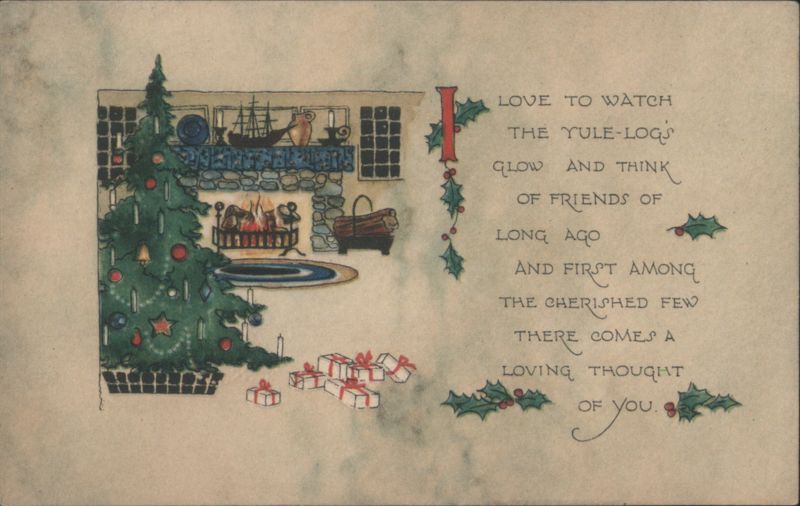 I LOVE TO WATCH
THE YULE-LOG'S
GLOW AND THINK
OF FRIENDS OF
LONG AGO
AND FIRST AMONG
THE CHERISHED FEW
THERE COMES A
LOVING THOUGHT
OF YOU.